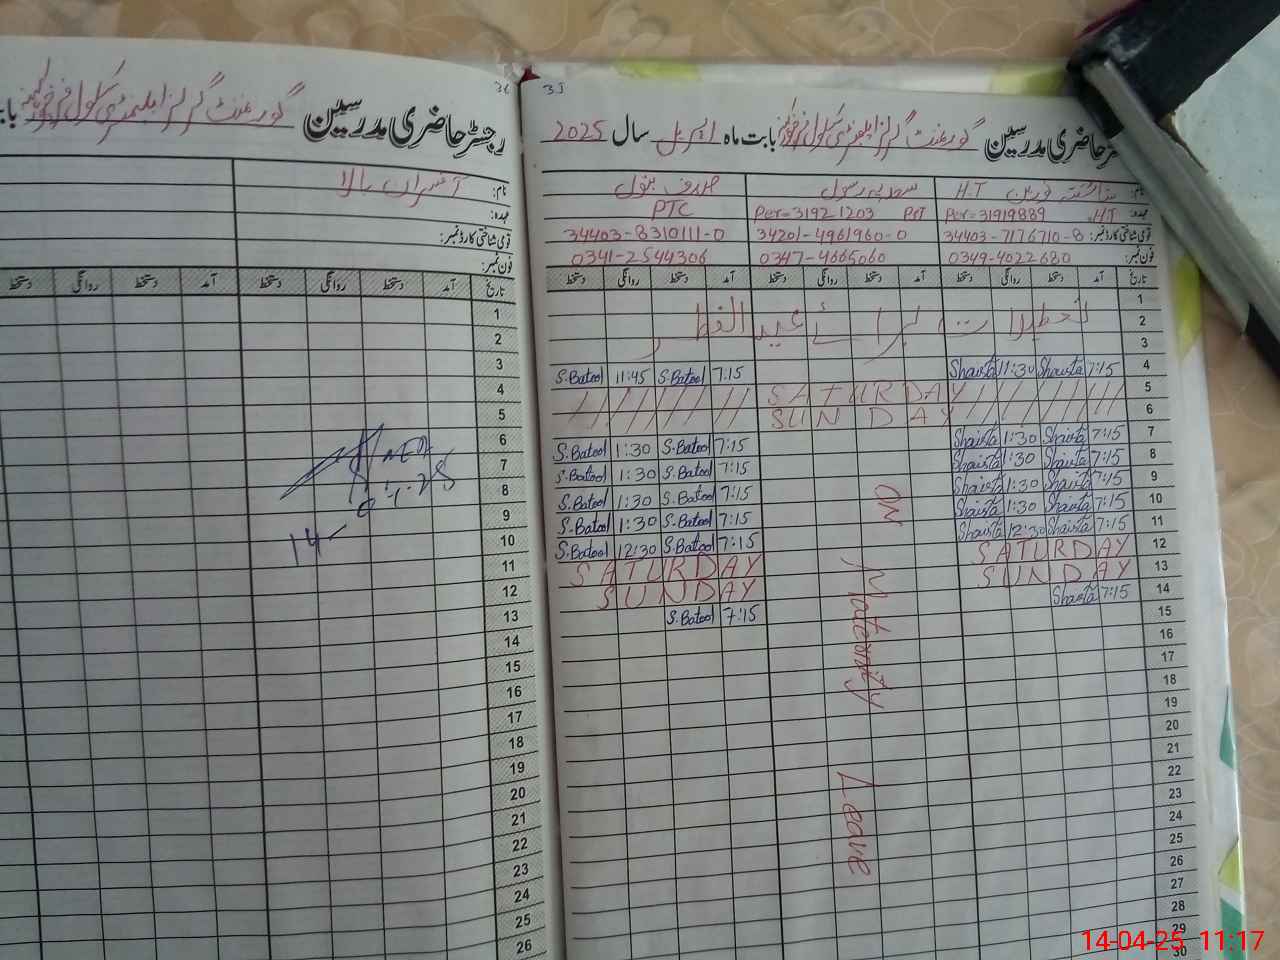 32
رجسٹر حاضری مدرسین گورنمنٹ گرلز ایلیمنٹری سکول
نام: آفسران بالا
عہدہ:
قومی شناختی کارڈ نمبر:
فون نمبر:
تاریخ آمد دستخط روانگی دستخط آمد دستخط روانگی دستخط
1
2
3
4
5
6
7
8
9
10
11
12
13
14
15
16
17
18
19
20
21
22
23
24
25
26
AEO
14-
33
حاضری مدرسین گورنمنٹ گرلز ایلیمنٹری سکول بابت ماہ اپریل سال 2025
شائستہ نورین H.T سعدیہ رسول صدف بتول
عہدہ: HT. Per=31919889 PST Per=31921203 PTC
قومی شناختی کارڈ نمبر: 34403-7176710-8 34201-4961960-0 34403-8310111-0
فون نمبر: 0349-4022680 0347-4665060 0341-2544306
تاریخ آمد دستخط روانگی دستخط آمد دستخط روانگی دستخط آمد دستخط روانگی دستخط
1
2 تعطیلات برائے عید الفطر
3
4 7:15 Shaista 11:30 Shaista 7:15 S.Batool 11:45 S.Batool
5 SATURDAY
6 SUNDAY
7 7:15 Shaista 1:30 Shaista 7:15 S.Batool 1:30 S.Batool
8 7:15 Shaista 1:30 Shaista 7:15 S.Batool 1:30 S.Batool
9 7:15 Shaista 1:30 Shaista 7:15 S.Batool 1:30 S.Batool
10 7:15 Shaista 1:30 Shaista 7:15 S.Batool 1:30 S.Batool
11 7:15 Shaista 12:30 Shaista 7:15 S.Batool 12:30 S.Batool
12 SATURDAY SATURDAY
13 SUNDAY SUNDAY
14 7:15 Shaista 7:15 S.Batool
15
16
17
18
19
20
21
22
23
24
25
26
27
28
29
30
ON Maternity Leave
14-04-25 11:17